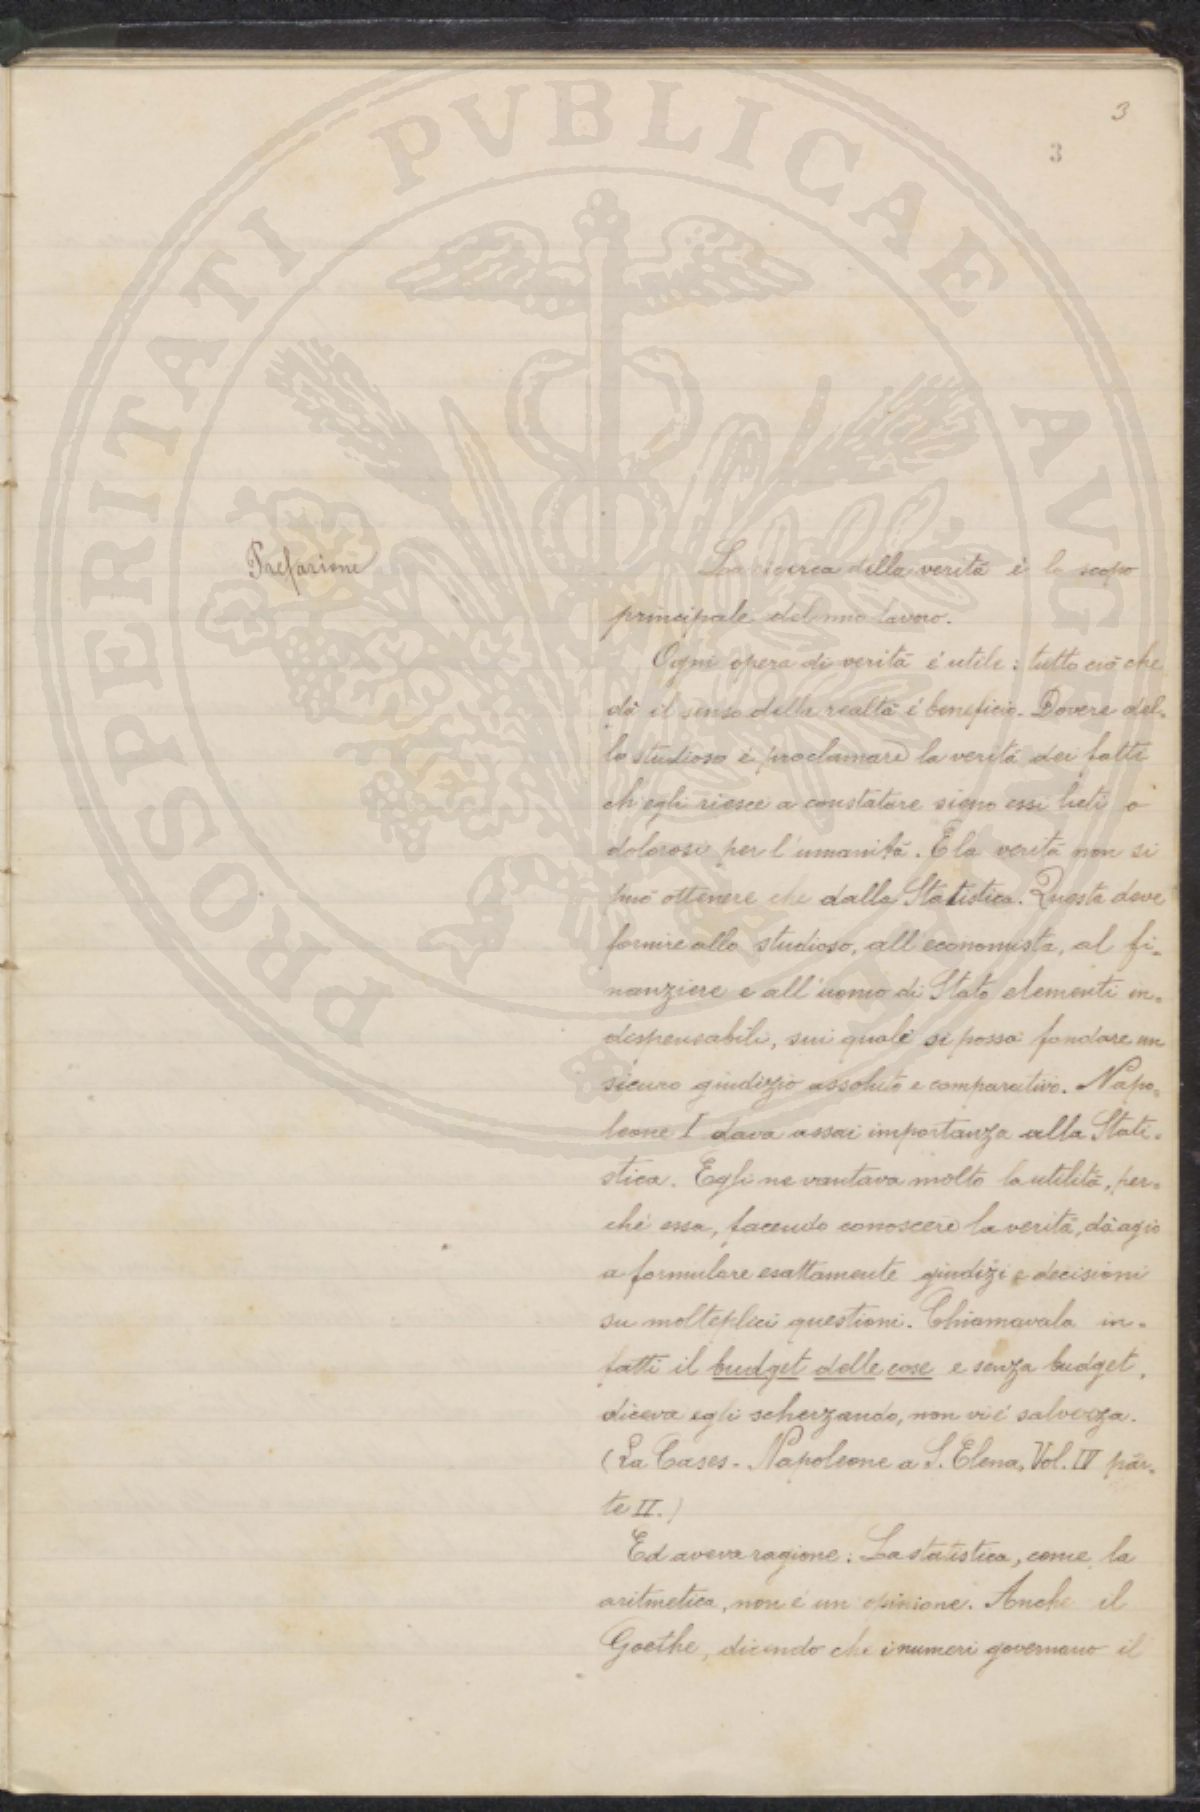 3
3
PROSPERITATI PVBLICAE AVGENDAE
Prefazione
La ricerca della verità è lo scopo
principale del mio lavoro.
Ogni opera di verità é utile: tutto ciò che
dà il senso della realtà é beneficio. Dovere del-
lo studioso é proclamare la verità dei fatti
ch'egli riesce a constatare sieno essi lieti o
dolorosi per l'umanità. E la verità non si
può ottenere che dalla Statistica. Questa deve
fornire allo studioso, all'economista, al fi-
nanziere e all'uomo di Stato elementi in-
dispensabili, sui quali si possa fondare un
sicuro giudizio assoluto e comparativo. Napo-
leone I dava assai importanza alla Stati-
stica. Egli ne vantava molto la utilità, per-
ché essa, facendo conoscere la verità, dà agio
a formulare esattamente giudizi e decisioni
su molteplici questioni. Chiamavala in-
fatti il budget delle cose e senza budget,
diceva egli scherzando, non vi é salvezza.
(La Cases - Napoleone a S. Elena, Vol. IV par-
te II.)
Ed aveva ragione: La statistica, come la
aritmetica, non é un opinione. Anche il
Goethe, dicendo che i numeri governano il